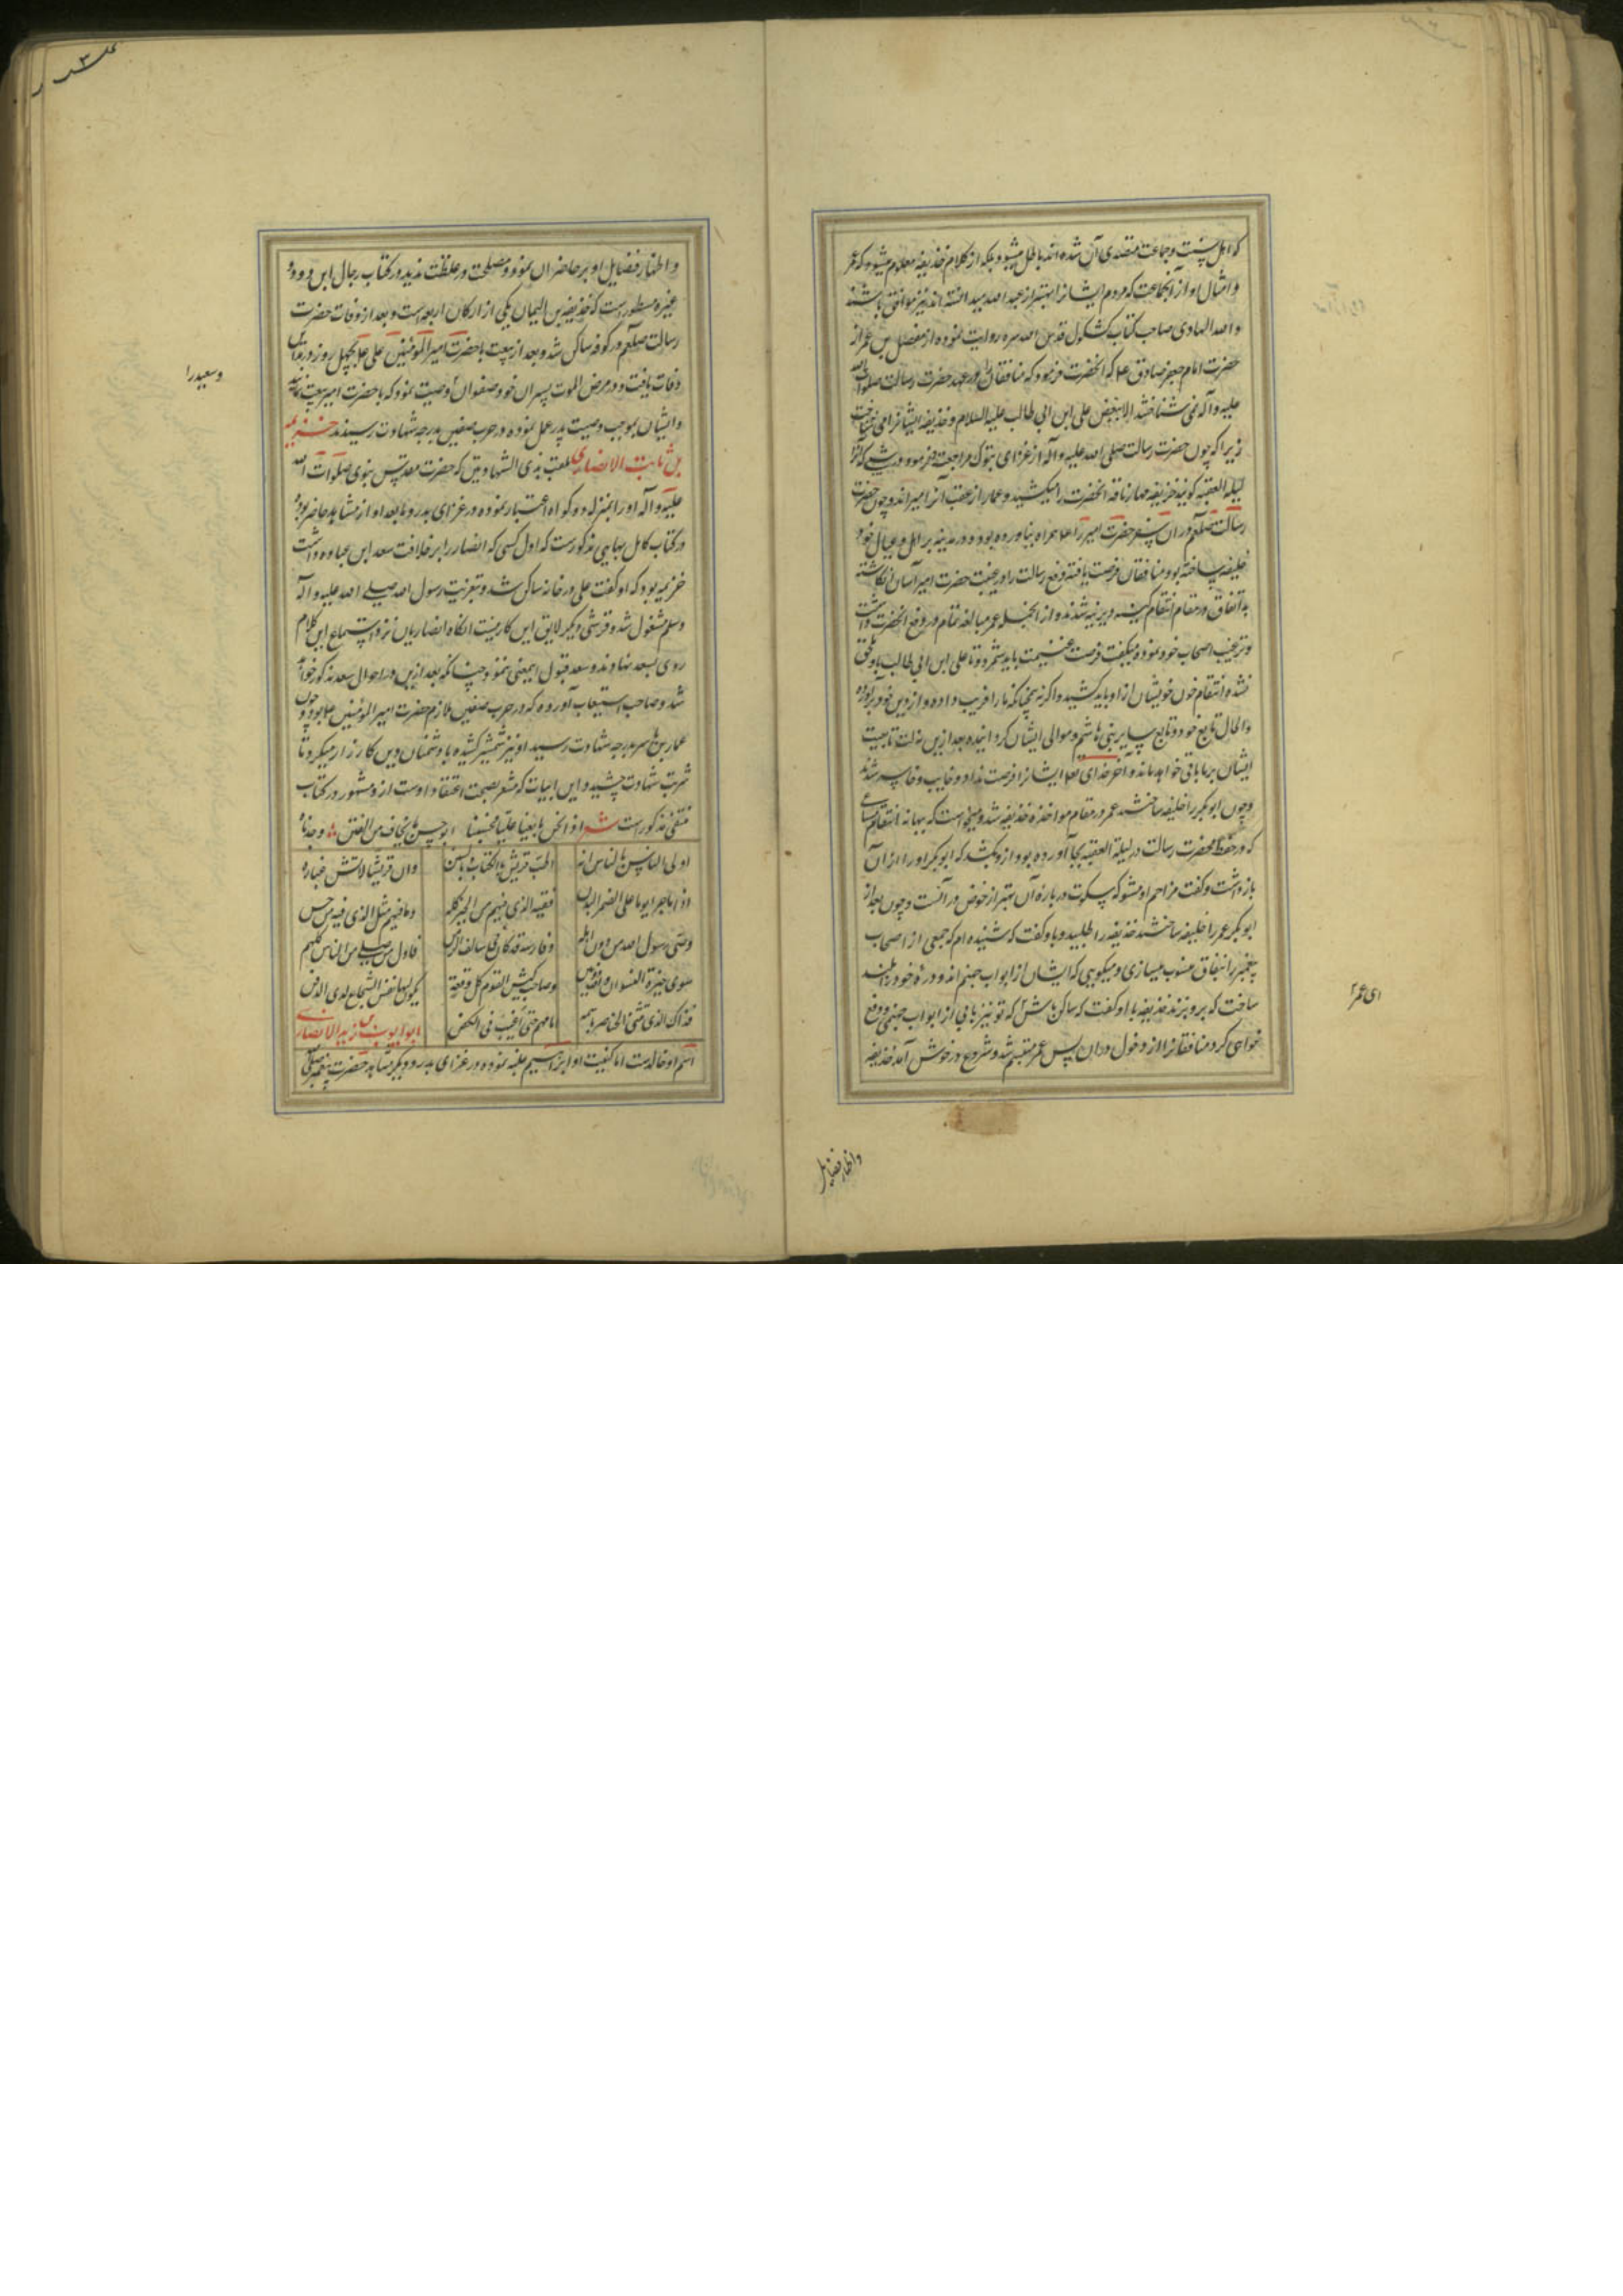 که اهل سنت و جماعت مقتدی آن شده اند باطل میشود بلکه از کلام حذیفه معلوم میشود که عمر
و امثال او از آنجماعت که مردم ایشانرا بهتر از عبد الله میدانسته اند نیز منافق باشند
والله الهادی صاحب کتاب کشکول قدس الله سره روایت نموده از مفضل بن عمر از
حضرت امام جعفر صادق ع که آنحضرت فرمود که منافقان در عهد حضرت رسالت صلوات الله
علیه و آله نمی شناختند الا ببغض علی ابن ابی طالب علیه السلام و حذیفه ایشانرا می شناخت
زیرا که چون حضرت رسالت صلی الله علیه و آله از غزای تبوک مراجعت فرمود در شبی که آنرا
لیلة العقبه گویند حذیفه مهار ناقه آنحضرت را میکشید و عمار از عقب آنرا میراند و چون حضرت
رسالت صلعم در آن سفر حضرت امیر را ع همراه نیاورده بود و در مدینه بر اهل و عیال خود
خلیفه ساخته بود منافقان فرصت یافته دفع رسالت را در غیبت حضرت امیر آسان انگاشته
به اتفاق در مقام انتقام کینه دیرینه شدند و از انجمله عمر مبالغه تمام در دفع آنحضرت داشت
و ترغیب اصحاب خود نموده میگفت فرصت غنیمت باید شمرد و تا علی ابن ابی طالب باو ملحق
نشده انتقام خون خویشان از او باید کشید و اگر نه همچنانکه ما را فریب داده و از دین خود برآورده
و الحال تابع خود و تابع سایر بنی هاشم و موالی ایشان گردانیده بعد ازین مذلت تابعیت
ایشان بر ما باقی خواهد ماند و آخر خدای تع ایشانرا فرصت نداد و خایب و خاسر شدند
و چون ابو بکر را خلیفه ساختند عمر در مقام مواخذه حذیفه شد و میخواست که ببهانه انتقام سعی
که در حفظ حضرت رسالت در لیلة العقبه بجا آورده بود ازو بکشد که ابو بکر او را از آن
باز داشت و گفت مزاحم او مشو که سکوت در باره آن بهتر از خوض در آنست و چون بعد از
ابو بکر عمر را خلیفه ساختند حذیفه را طلبید و باو گفت که شنیده ام که جمعی از اصحاب
پیغمبر را بنفاق منسوب میسازی و میگویی که ایشان از ابواب جهنم اند و دره خود را بلند
ساخت که برو بزند حذیفه با او گفت که ساکن باش که تو نیز بابی از ابواب جهنمی و دفع
خواهی کرد منافقانرا از دخول در آن پس عمر متبسم شد و شروع در خوش آمد حذیفه
ای عمر
و اظهار فضایل
و اظهار فضایل او بر حاضران نمود و مصلحت در غلظت ندید در کتاب رجال ابن داود و
غیره مسطورست که حذیفه بن الیمان یکی از ارکان اربعه است و بعد از وفات حضرت
رسالت صلعم در کوفه ساکن شد و بعد از بیعت با حضرت امیر المومنین علی ع بچهل روز در مداین
وفات یافت و در مرض الموت پسران خود صفوان را وصیت نمود که با حضرت امیر بیعت نمایند
و ایشان بموجب وصیت پدر عمل نموده در حرب صفین بدرجه شهادت رسیدند خزیمه
بن ثابت الانصاری ملقب بذی الشهادتین که حضرت مقدس نبوی صلوات الله
علیه و آله او را بمنزله دو گواه اعتبار نموده در غزای بدر و ما بعد او از مشاهد حاضر بود و
در کتاب کامل بهایی مذکورست که اول کسی که انصار را بر خلافت سعد ابن عباده داشت
خزیمه بود که او گفت علی در خانه ساکن شد و بتعزیت رسول الله صلی الله علیه و آله
وسلم مشغول شد و قرشی دیگر لایق این کار نیست انگاه انصاریان نزد استماع این کلام
روی بسعد نهادند و سعد قبول اینمعنی ننمود چنانکه بعد ازین در احوال سعد مذکور خواهد
شد و صاحب استیعاب آورده که در حرب صفین ملازم حضرت امیر المومنین ع بود و چون
عمار بن یاسر بدرجه شهادت رسید او نیز شمشیر کشیده با دشمنان دین کارزار میکرد تا
شربت شهادت چشید و این ابیات که مشعر بصحت اعتقاد اوست ازو مشهور در کتاب
منتقی مذکور است شعر اذا نحن بایعنا علیا فحسبنا ابو حسن مما یخاف من الفتن وجدناه
اولی الناس بالناس انه اطب قریش بالکتاب و بالسنن وان قریشا لا تشق غباره
اذا ما جرا یوما علی الضمر البدن ففیه الذی فیهم من الخیر کله وما فیهم مثل الذی فیه من حسن
وصی رسول الله من دون اهله وفارسه قد کان فی سالف الزمن فاول من صلی من الناس کلهم
سوی خیرة النسوان والله ذو منن وصاحب کبش القوم کل وقعة یکون لها نفس الشجاع لدی الذقن
فذاک الذی تثنی الخناصر باسمه امامهم حتی اغیب فی الکفن ابو ایوب بن زید الانصاری
اسم او خالدست اما کنیت او بر اسم غلبه نموده در غزای بدر و دیگر مشاهد حضرت پیغمبر صلی
وسعید را